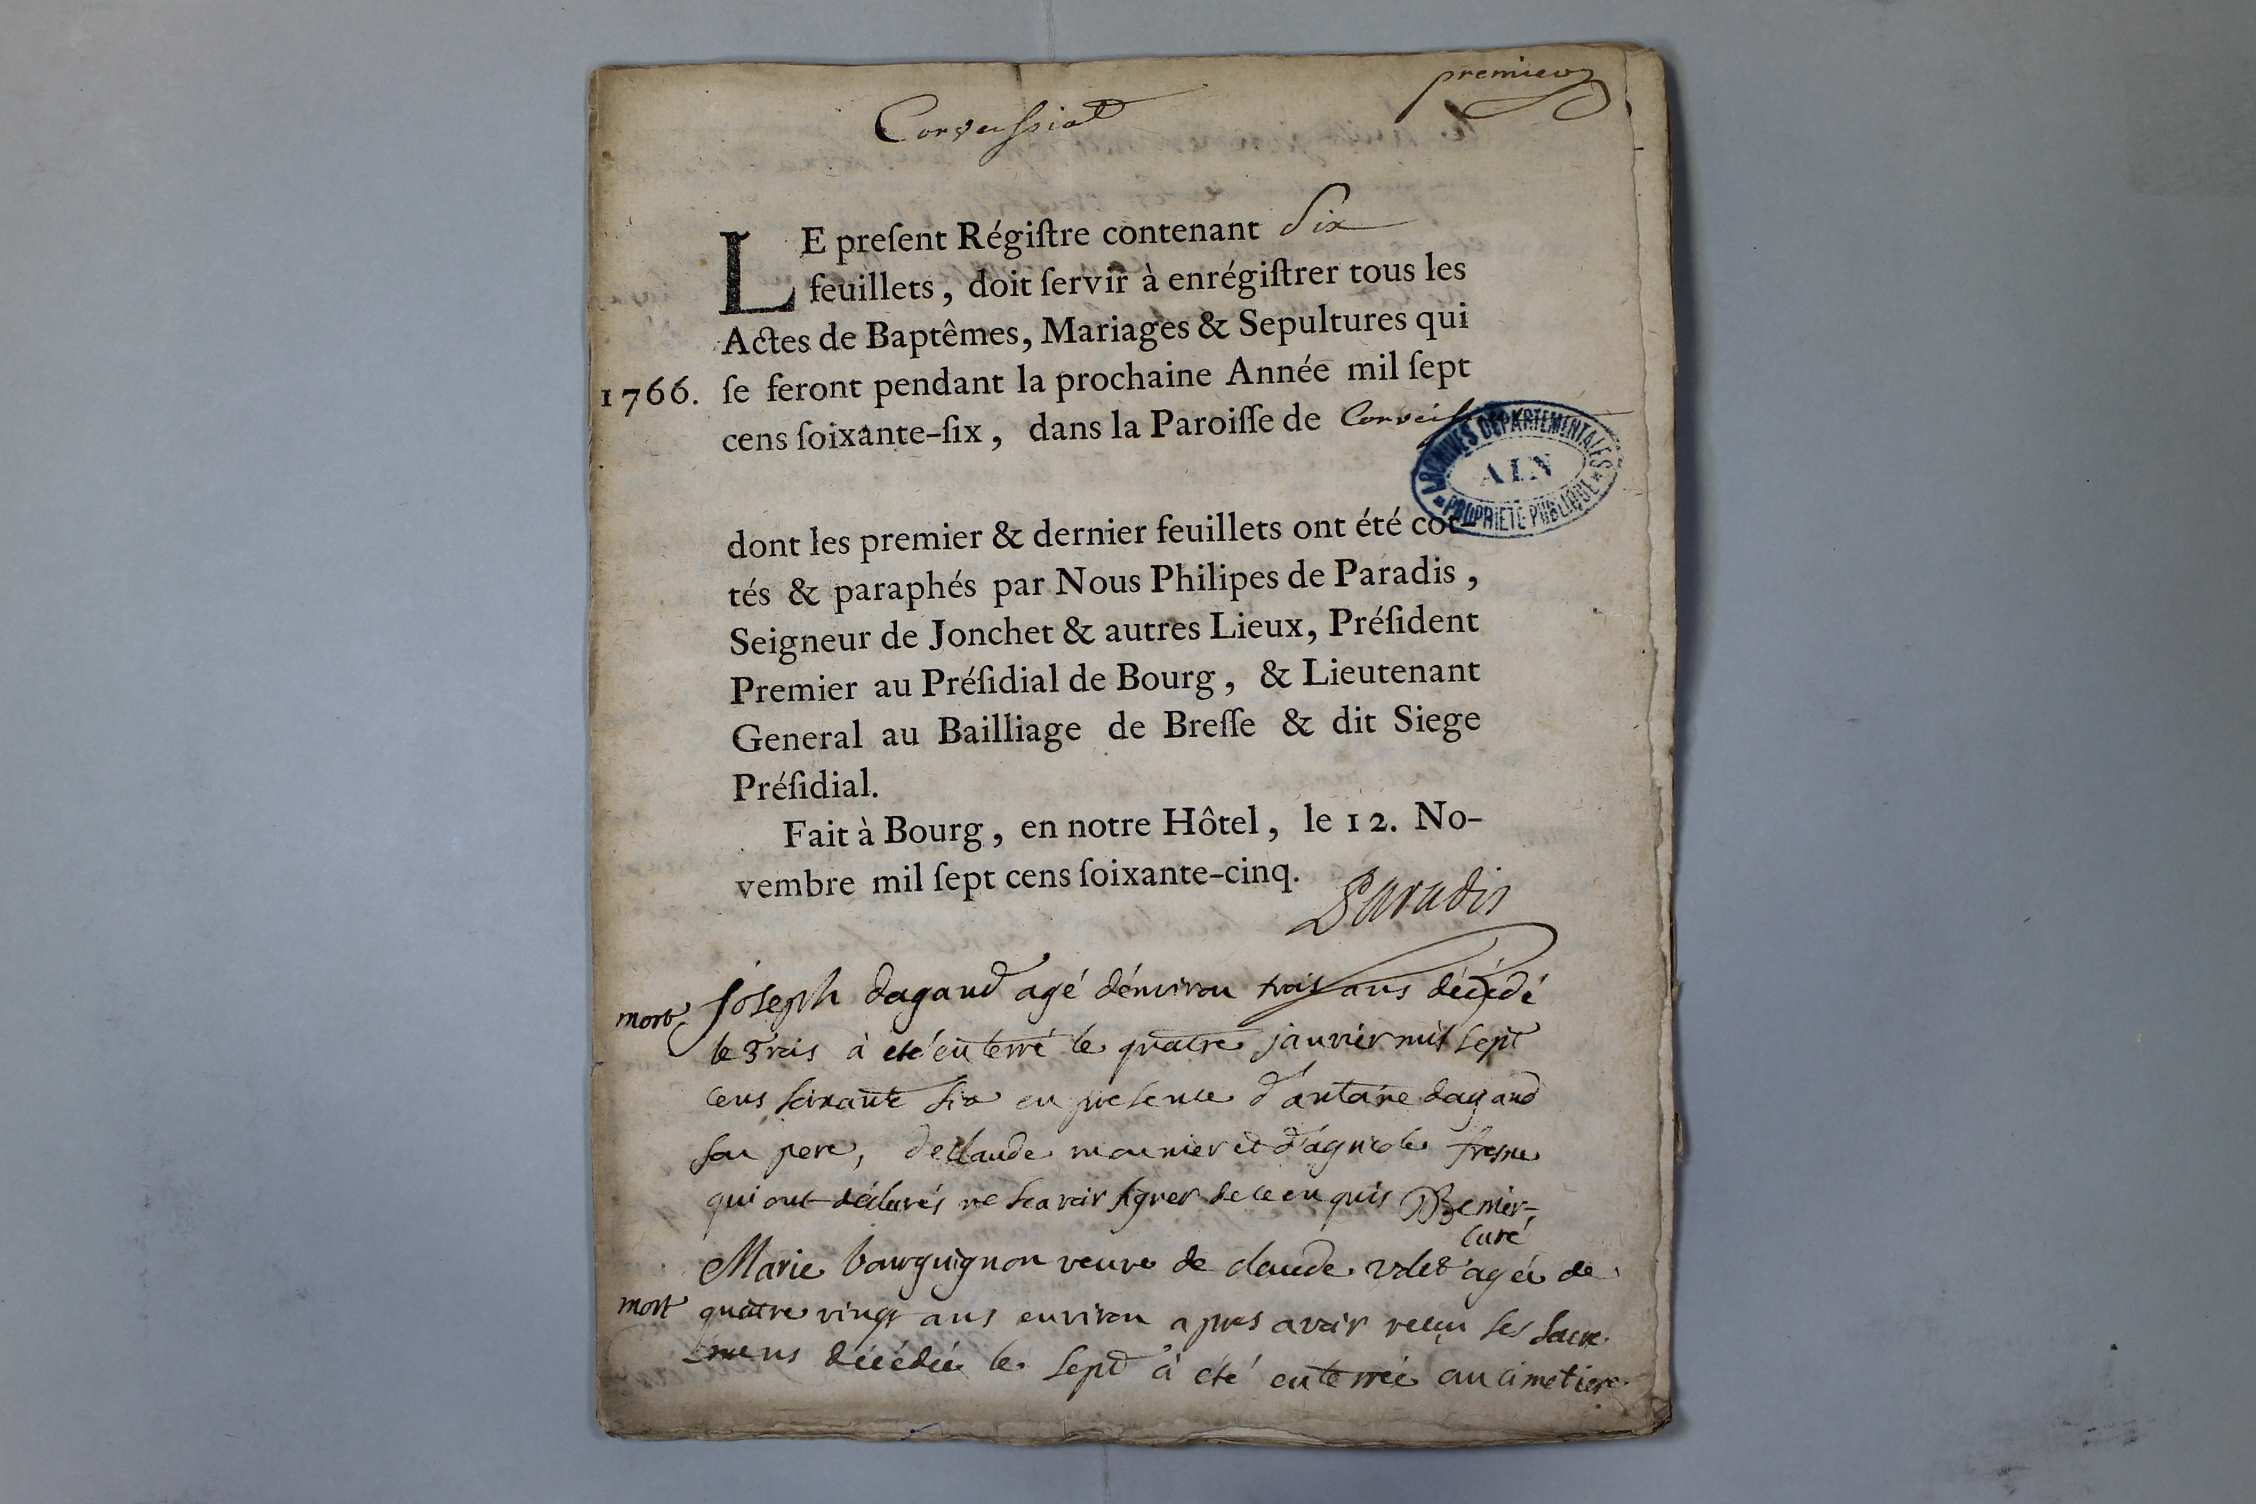 premier
Corveissiat
LE preſent Régiſtre contenant Six
feuillets, doit ſervir à enrégiſtrer tous les
Actes de Baptêmes, Mariages & Sepultures qui
1766. ſe feront pendant la prochaine Année mil ſept
cens ſoixante-ſix, dans la Paroiſſe de
ARCHIVES DÉPARTEMENTALES
AIN
PROPRIÉTÉ PUBLIQUE
dont les premier & dernier feuillets ont été cot-
tés & paraphés par Nous Philipes de Paradis,
Seigneur de Jonchet & autres Lieux, Préſident
Premier au Préſidial de Bourg, & Lieutenant
General au Bailliage de Breſſe & dit Siege
Préſidial.
Fait à Bourg, en notre Hôtel, le 12. No-
vembre mil ſept cens ſoixante-cinq.
Paradis
mort joseph dagand agé d'environ trois ans décédé
le trois à eté enterré le quatre janvier mil sept
cens soixante six en presence d'antoine dagand
son pere, de claude mounier et d'agricole fresne
qui ont déclarés ne scavoir signer de ce enquis
curé
Marie bourguignon veuve de claude agée de
mort quatre vingt ans environ apres avoir reçu ses sacre-
mens décédée le sept à été enterrée au cimetiere